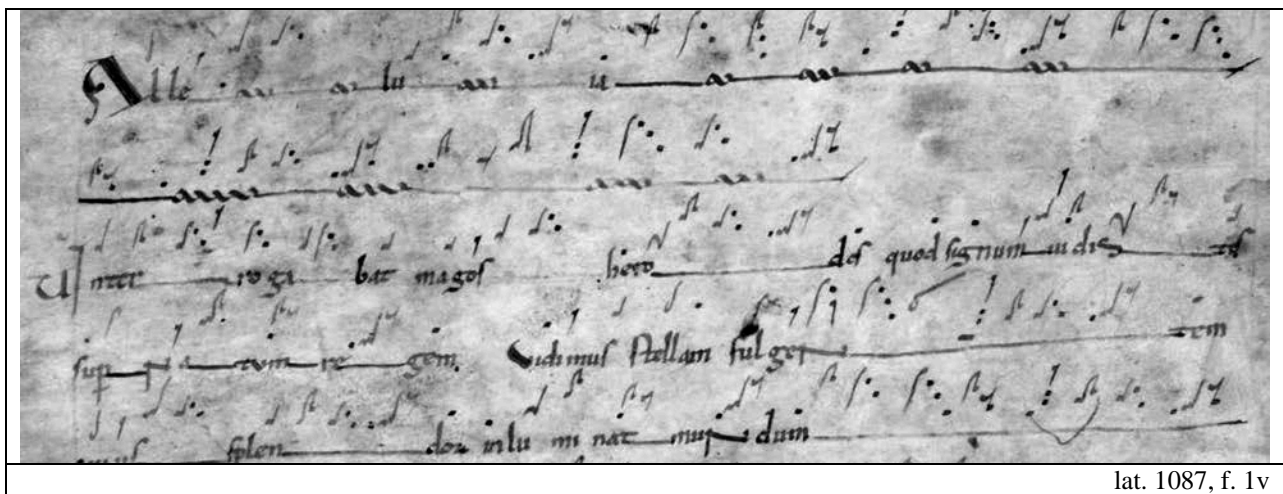 Alle lu ia
V Inter ro ga bat magos hero des quod signum uidis tis
sup na tum re gem. Vidimus stellam fulgen tem
splen dor inlu mi nat mun dum
lat. 1087, f. 1v